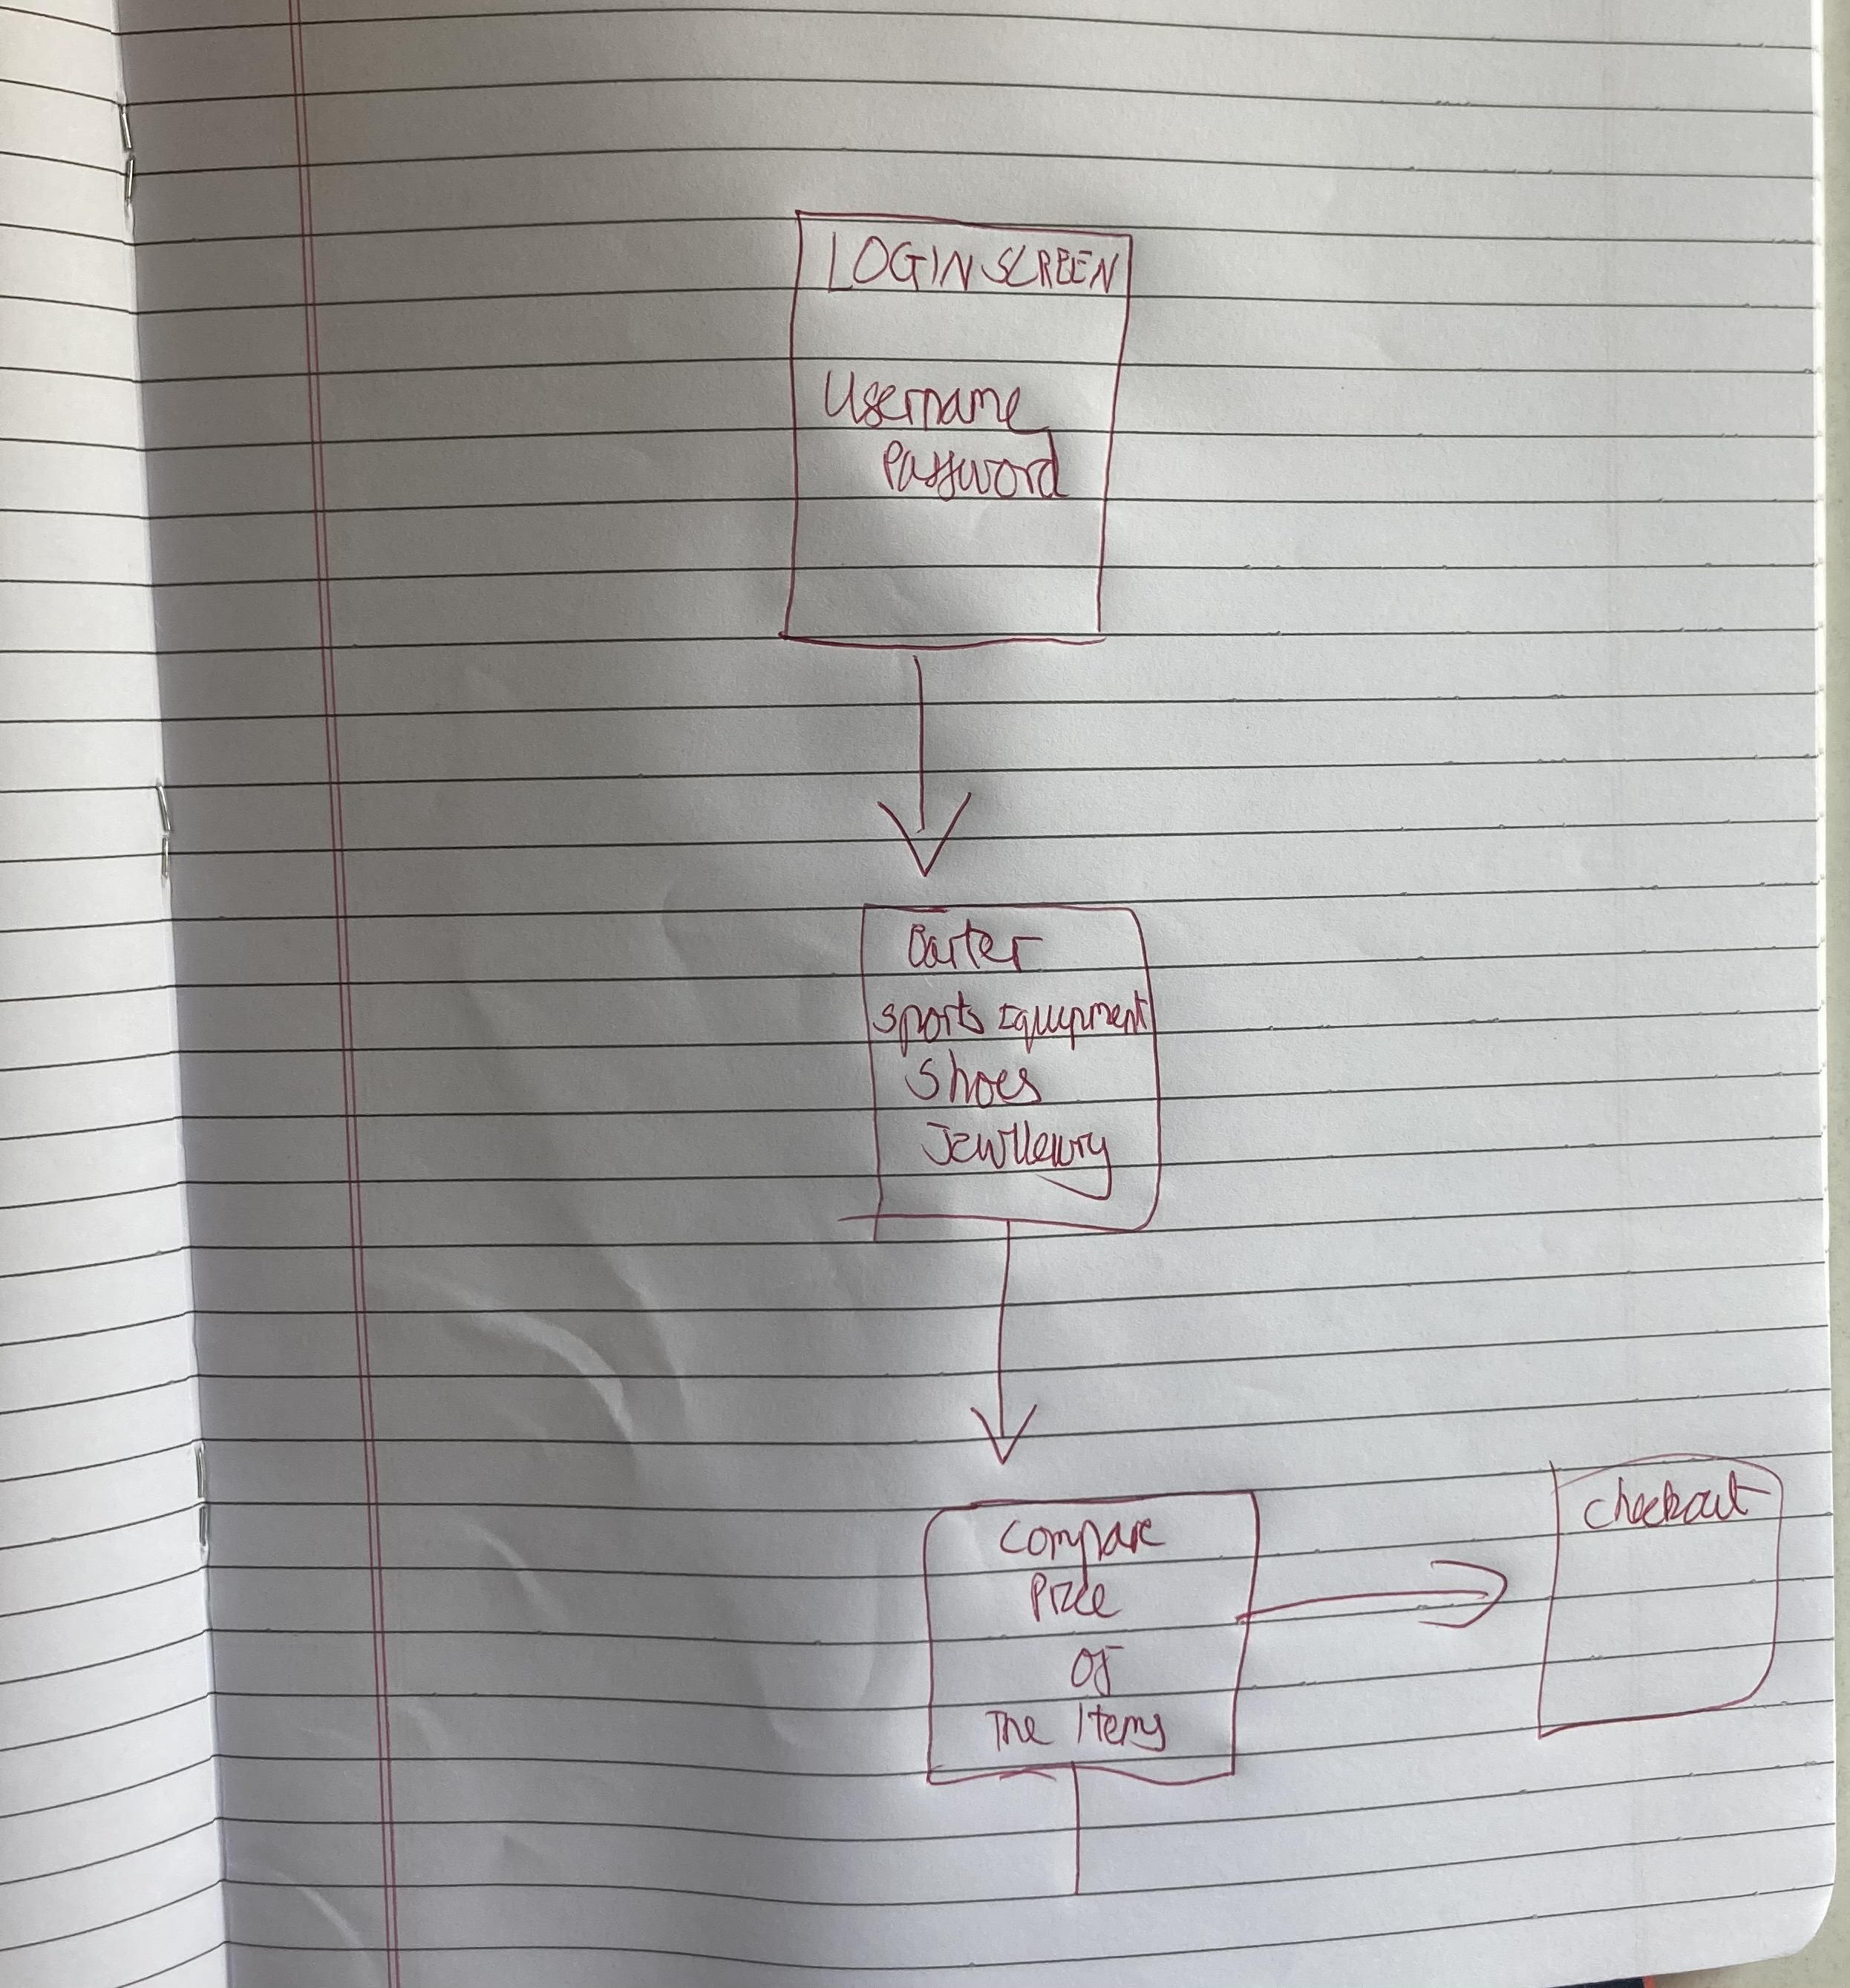 LOGIN SCREEN
Username
Password
Barter
Sports Equipment
Shoes
Compare
Of
The Items
checkout